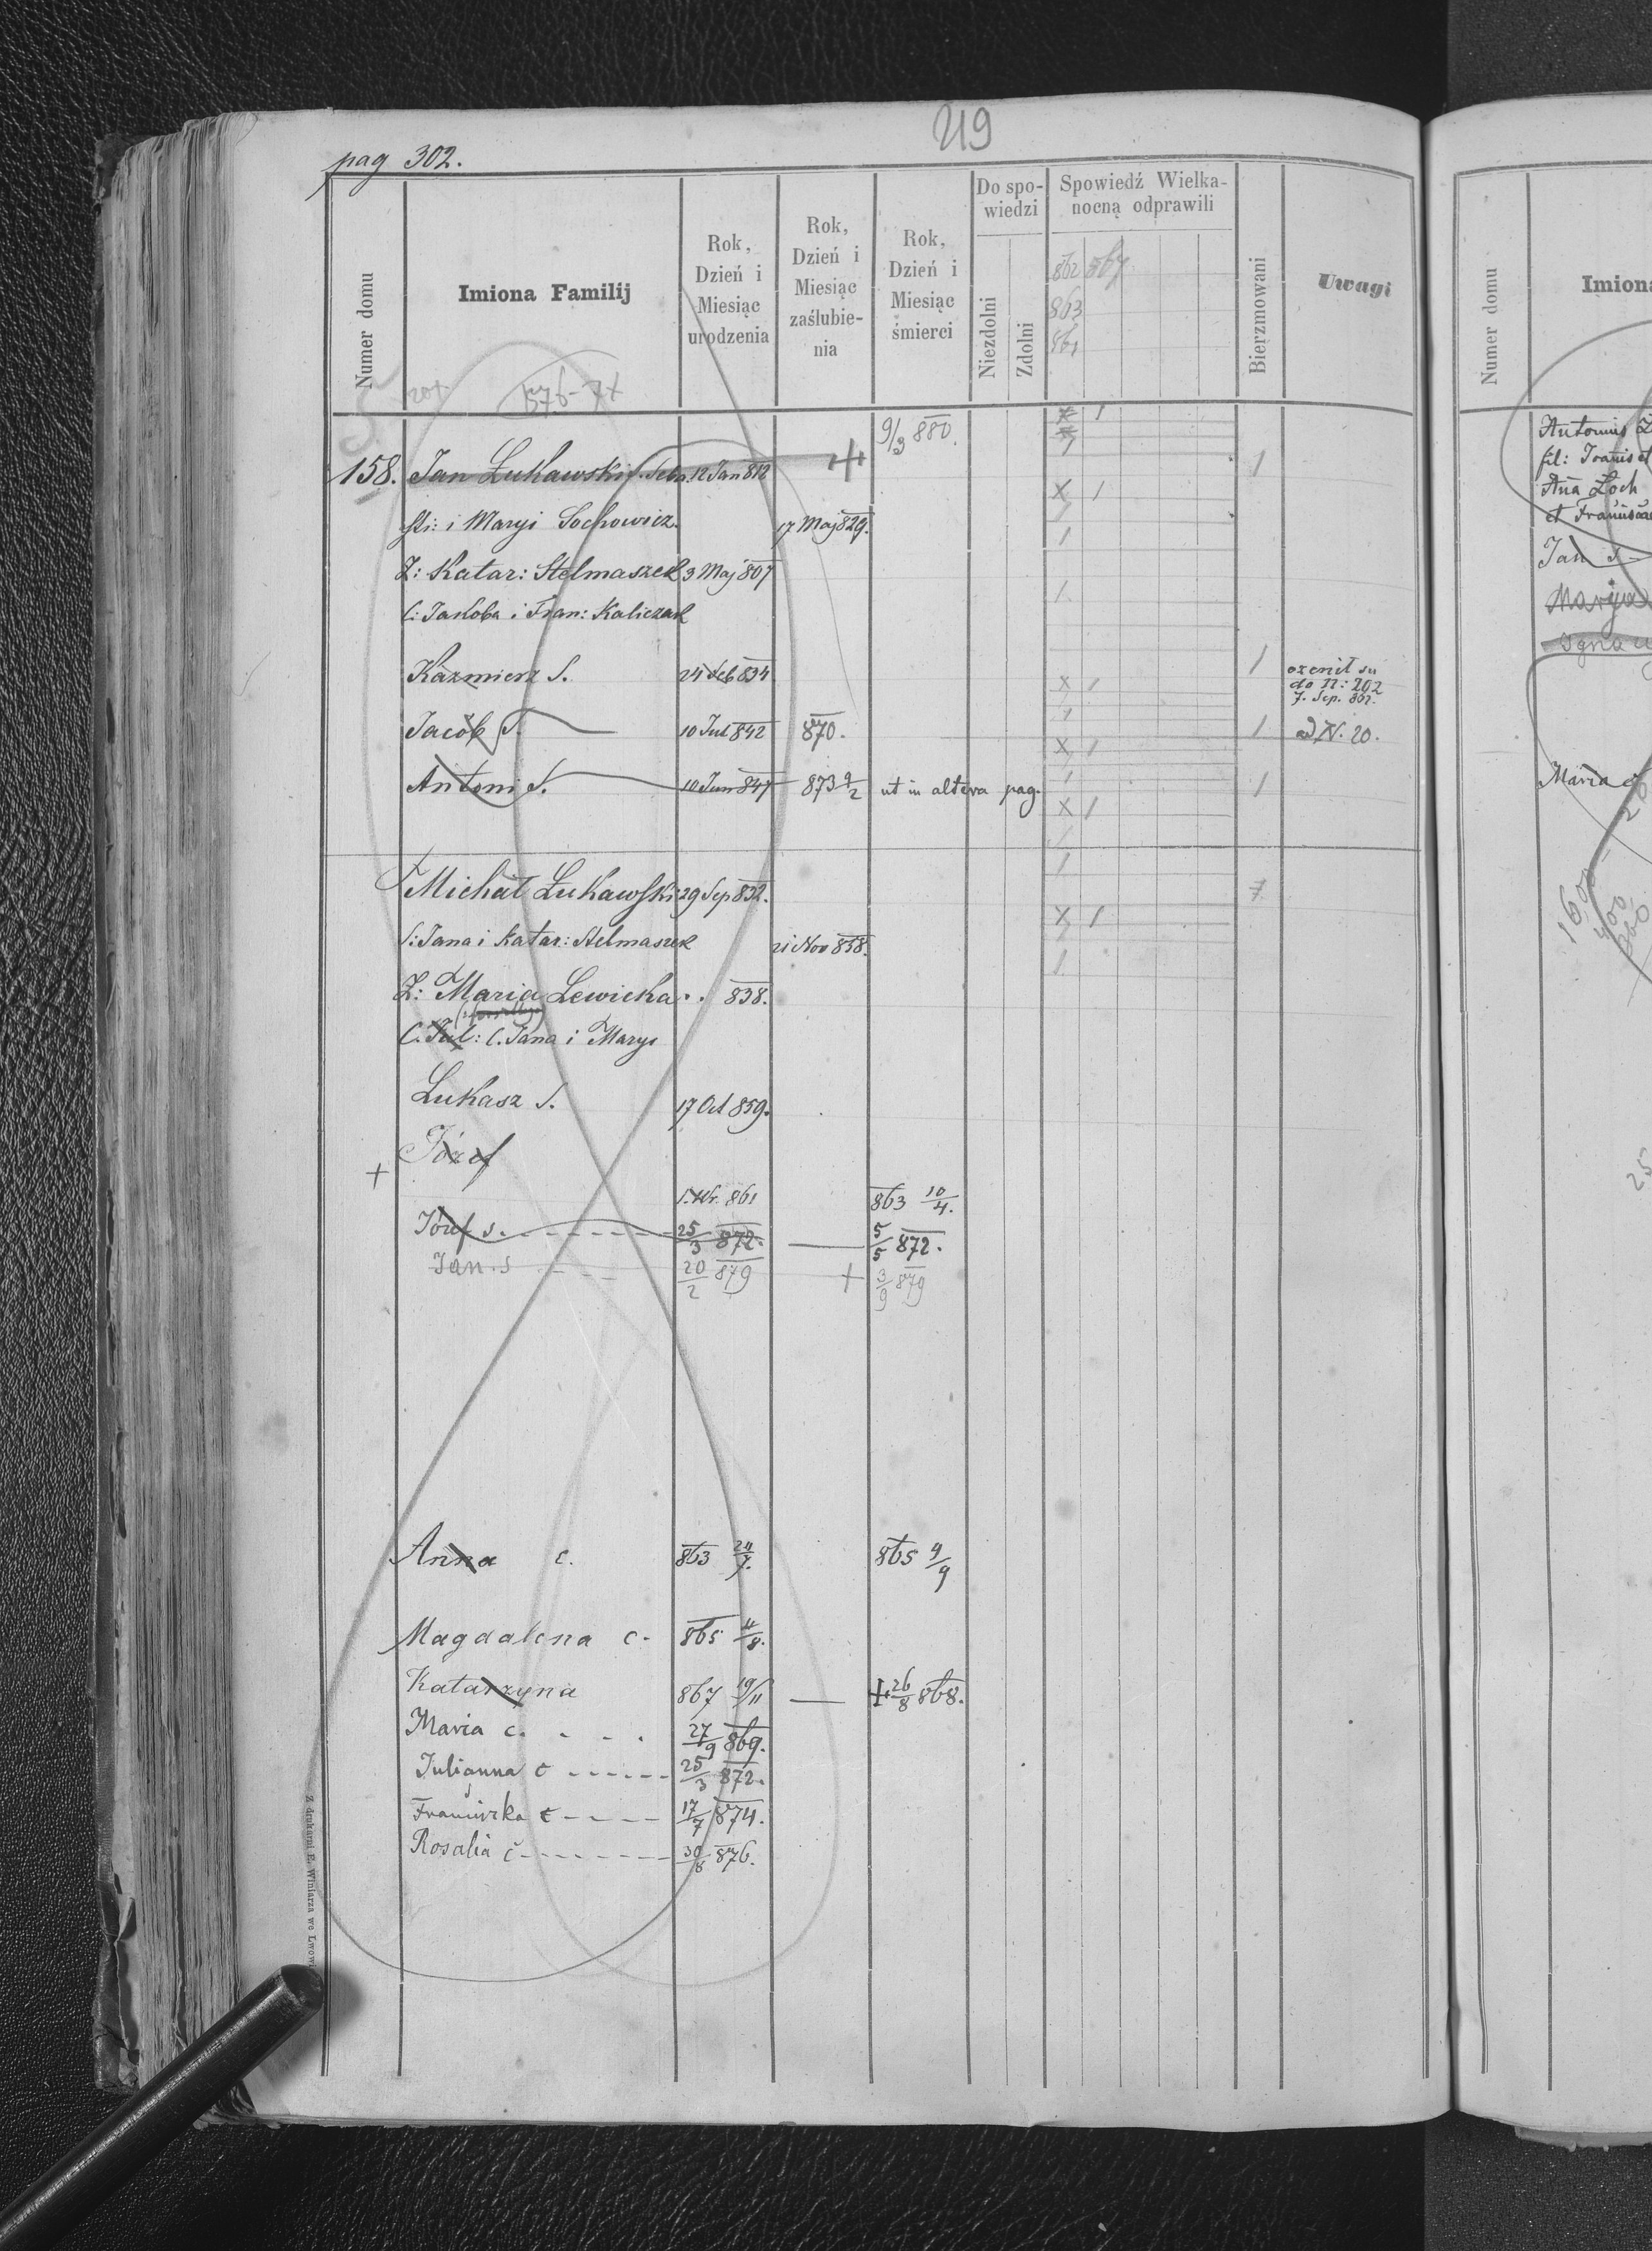 219
pag 302.
Numer domu
Imiona Familij
Rok, Dzień i Miesiąc urodzenia
Rok, Dzień i Miesiąc zaślubienia
Rok, Dzień i Miesiąc śmierci
Do spowiedzi
Niezdolni
Zdolni
Spowiedź Wielkanocną odprawili
862 867
863
861
Bierzmowani
Uwagi
576-7x
9/3 880.
158. Jan Łukawski s. Seba 12 Jan 812
i Maryi Sochowicz. 17 Maj 829.
Ż: Katar: Stelmaszek 3 Maj 807
C: Jakoba i Fran: Kaliczak
Kazmierz S. 24 Feb 834 ożenił się
do N: 202
7. Sep. 862.
Jacób S. 10 Jul 842 870. ad N. 20.
Antoni S. 10 Jun 847 873 9/2 ut in altera pag.
Michał Łukawski 29 Sep 832.
S: Jana i Katar: Stelmaszek 21 Nov 858.
Ż: Maria Lewicka . . 838.
C. Jul: C. Jana i Maryi
Łukasz S. 17 Oct 859.
Józef
+
861 863 10/4.
Józef s. 25/3 872. 5/5 872.
Jan. s 20/2 879 + 3/9 879
Anna c. 863 24/7. 865 4/9
Magdalena c. 865 11/8.
Katarzyna 867 19/11 — + 26/8 868.
Maria c. 27/9 869.
Julianna c 25/3 872.
Franciszka c 17/7 874.
Rosalia c 30/8 876.
Z drukarni E. Winiarza we Lwow
Numer domu
Imiona
Antonius
fil: Joanis et
Ana Zoch
et Francisca
Jan s
Marya
Igna
Maria c
1600
400
25